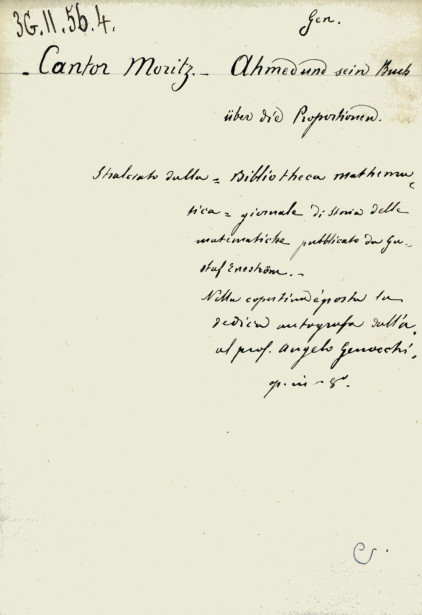 3G.II.56.4.
Gen.
- Cantor Moritz. - Ahmed und sein Buch
über die Proportionen.
Stralciato dalla = Bibliotheca mathema=
tica = giornale di storia delle
matematiche pubblicato da Gu-
staf Eneström. -
Nella copertina è posta la
dedica autografa dell'a.
al prof. Angelo Genocchi.
op. in - 8°.